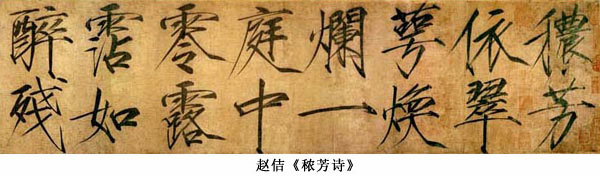 穠芳
依翠
萼煥
爛一
庭中
零露
霑如
醉殘
赵佶《秾芳诗》